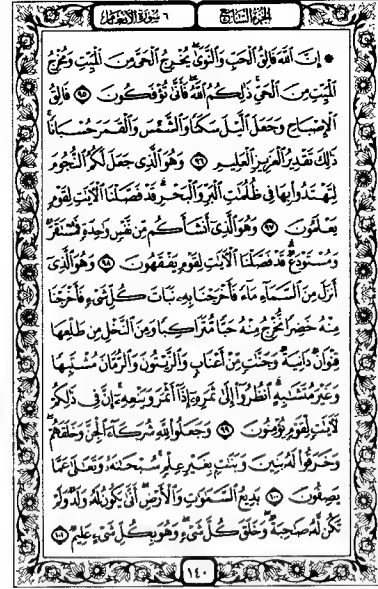 الجزء السابع ٦ سورة الأنعام
۞ إِنَّ ٱللَّهَ فَالِقُ ٱلْحَبِّ وَٱلنَّوَىٰ يُخْرِجُ ٱلْحَيَّ مِنَ ٱلْمَيِّتِ وَمُخْرِجُ
ٱلْمَيِّتِ مِنَ ٱلْحَيِّ ذَٰلِكُمُ ٱللَّهُ فَأَنَّىٰ تُؤْفَكُونَ ٩٥ فَالِقُ
ٱلْإِصْبَاحِ وَجَعَلَ ٱلَّيْلَ سَكَنًا وَٱلشَّمْسَ وَٱلْقَمَرَ حُسْبَانًا
ذَٰلِكَ تَقْدِيرُ ٱلْعَزِيزِ ٱلْعَلِيمِ ٩٦ وَهُوَ ٱلَّذِى جَعَلَ لَكُمُ ٱلنُّجُومَ
لِتَهْتَدُوا۟ بِهَا فِى ظُلُمَٰتِ ٱلْبَرِّ وَٱلْبَحْرِ قَدْ فَصَّلْنَا ٱلْءَايَٰتِ لِقَوْمٍ
يَعْلَمُونَ ٩٧ وَهُوَ ٱلَّذِىٓ أَنشَأَكُم مِّن نَّفْسٍ وَٰحِدَةٍ فَمُسْتَقَرٌّ
وَمُسْتَوْدَعٌ قَدْ فَصَّلْنَا ٱلْءَايَٰتِ لِقَوْمٍ يَفْقَهُونَ ٩٨ وَهُوَ ٱلَّذِىٓ
أَنزَلَ مِنَ ٱلسَّمَآءِ مَآءً فَأَخْرَجْنَا بِهِۦ نَبَاتَ كُلِّ شَىْءٍ فَأَخْرَجْنَا
مِنْهُ خَضِرًا نُّخْرِجُ مِنْهُ حَبًّا مُّتَرَاكِبًا وَمِنَ ٱلنَّخْلِ مِن طَلْعِهَا
قِنْوَانٌ دَانِيَةٌ وَجَنَّٰتٍ مِّنْ أَعْنَابٍ وَٱلزَّيْتُونَ وَٱلرُّمَّانَ مُشْتَبِهًا
وَغَيْرَ مُتَشَٰبِهٍ ٱنظُرُوٓا۟ إِلَىٰ ثَمَرِهِۦٓ إِذَآ أَثْمَرَ وَيَنْعِهِۦٓ إِنَّ فِى ذَٰلِكُمْ
لَءَايَٰتٍ لِّقَوْمٍ يُؤْمِنُونَ ٩٩ وَجَعَلُوا۟ لِلَّهِ شُرَكَآءَ ٱلْجِنَّ وَخَلَقَهُمْ
وَخَرَقُوا۟ لَهُۥ بَنِينَ وَبَنَٰتٍۭ بِغَيْرِ عِلْمٍ سُبْحَٰنَهُۥ وَتَعَٰلَىٰ عَمَّا
يَصِفُونَ ١٠٠ بَدِيعُ ٱلسَّمَٰوَٰتِ وَٱلْأَرْضِ أَنَّىٰ يَكُونُ لَهُۥ وَلَدٌ وَلَمْ
تَكُن لَّهُۥ صَٰحِبَةٌ وَخَلَقَ كُلَّ شَىْءٍ وَهُوَ بِكُلِّ شَىْءٍ عَلِيمٌ ١٠١
١٤٠